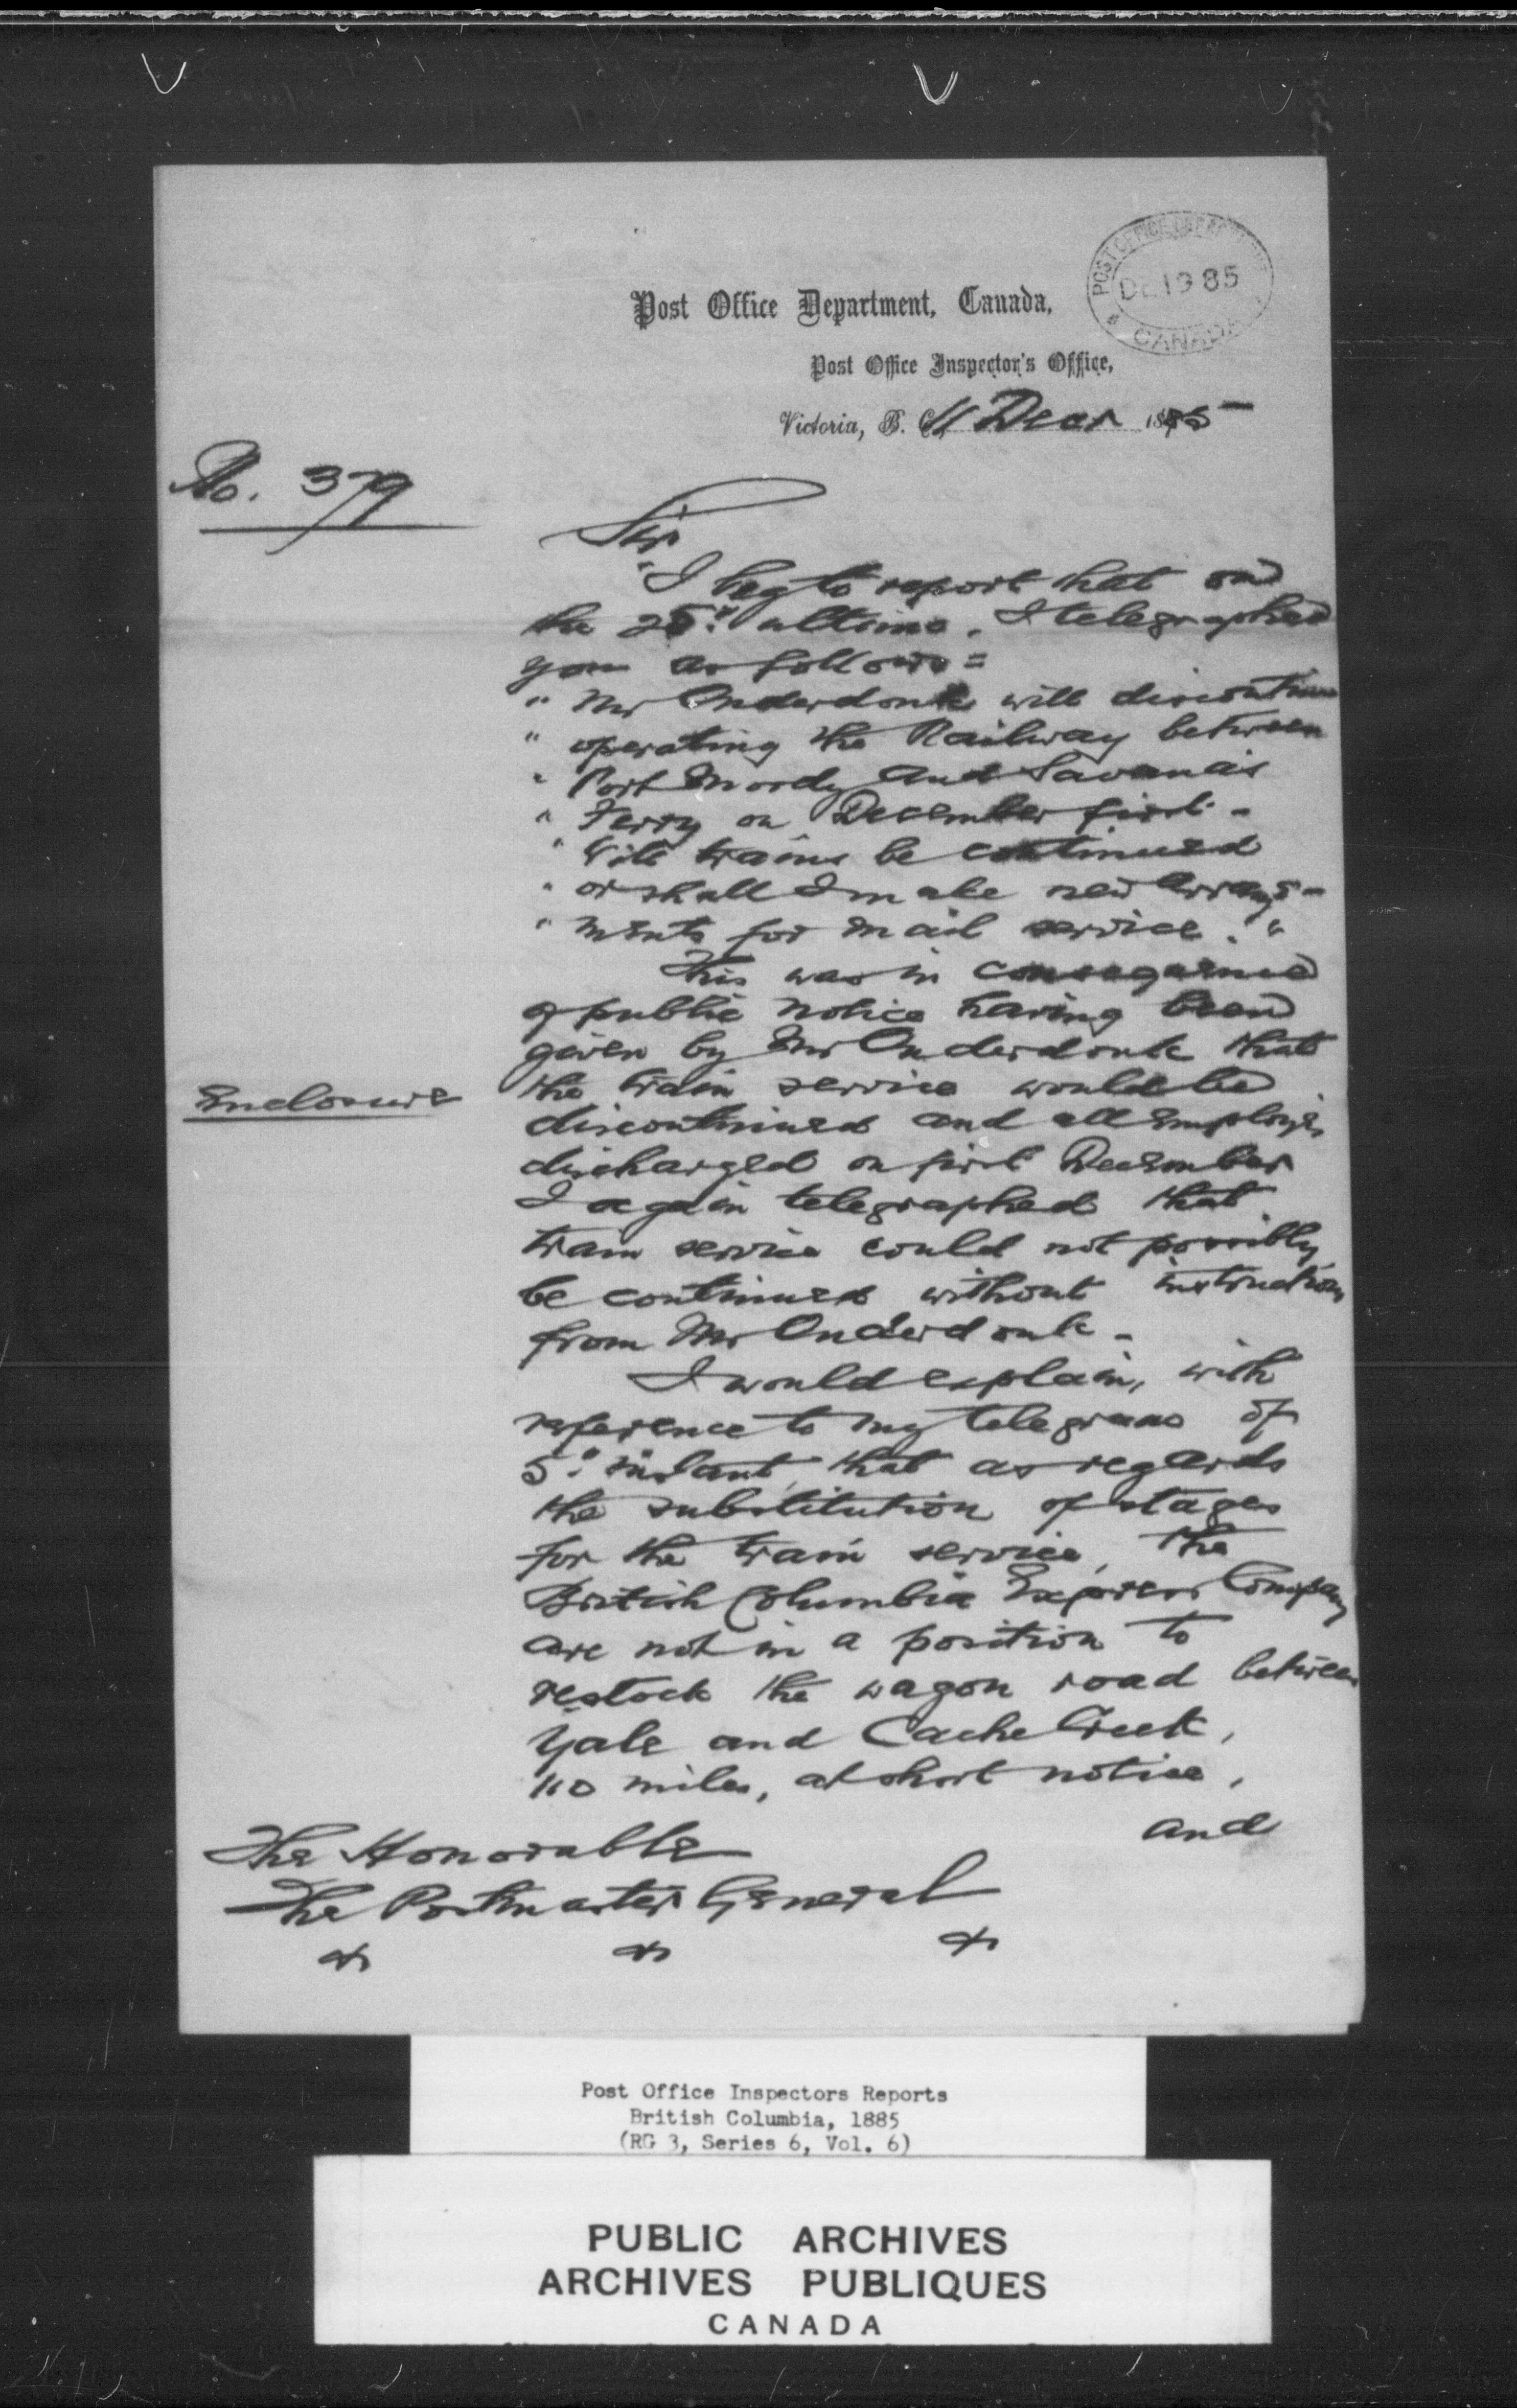 POST OFFICE DEPARTMENT
DE 19 85
CANADA
Post Office Department, Canada,
Post Office Inspector's Office,
Victoria, B. C. 11 Decr 1885
No. 379
Sir
I beg to report that on
the 25th ultimo, I telegraphed
you as follows =
" Mr Onderdonk will discontinue
" operating the Railway between
" Port Moody and Savona's
" Ferry on December first -
" Will trains be continued
" or shall I make new arrange-
" ments for mail service."
This was in consequence
of public notice having been
given by Mr Onderdonk that
Enclosure
the train service would be
discontinued and all employés
discharged on first December
I again telegraphed that
train service could not possibly
be continued without instructions
from Mr Onderdonk -
I would explain, with
reference to my telegram of
5th instant, that as regards
the substitution of stages
for the train service, the
British Columbia Express Company
are not in a position to
restock the wagon road between
Yale and Cache Creek,
110 miles, at short notice,
and
The Honorable
The Postmaster General
Post Office Inspectors Reports
British Columbia, 1885
(RG 3, Series 6, Vol. 6)
PUBLIC ARCHIVES
ARCHIVES PUBLIQUES
CANADA